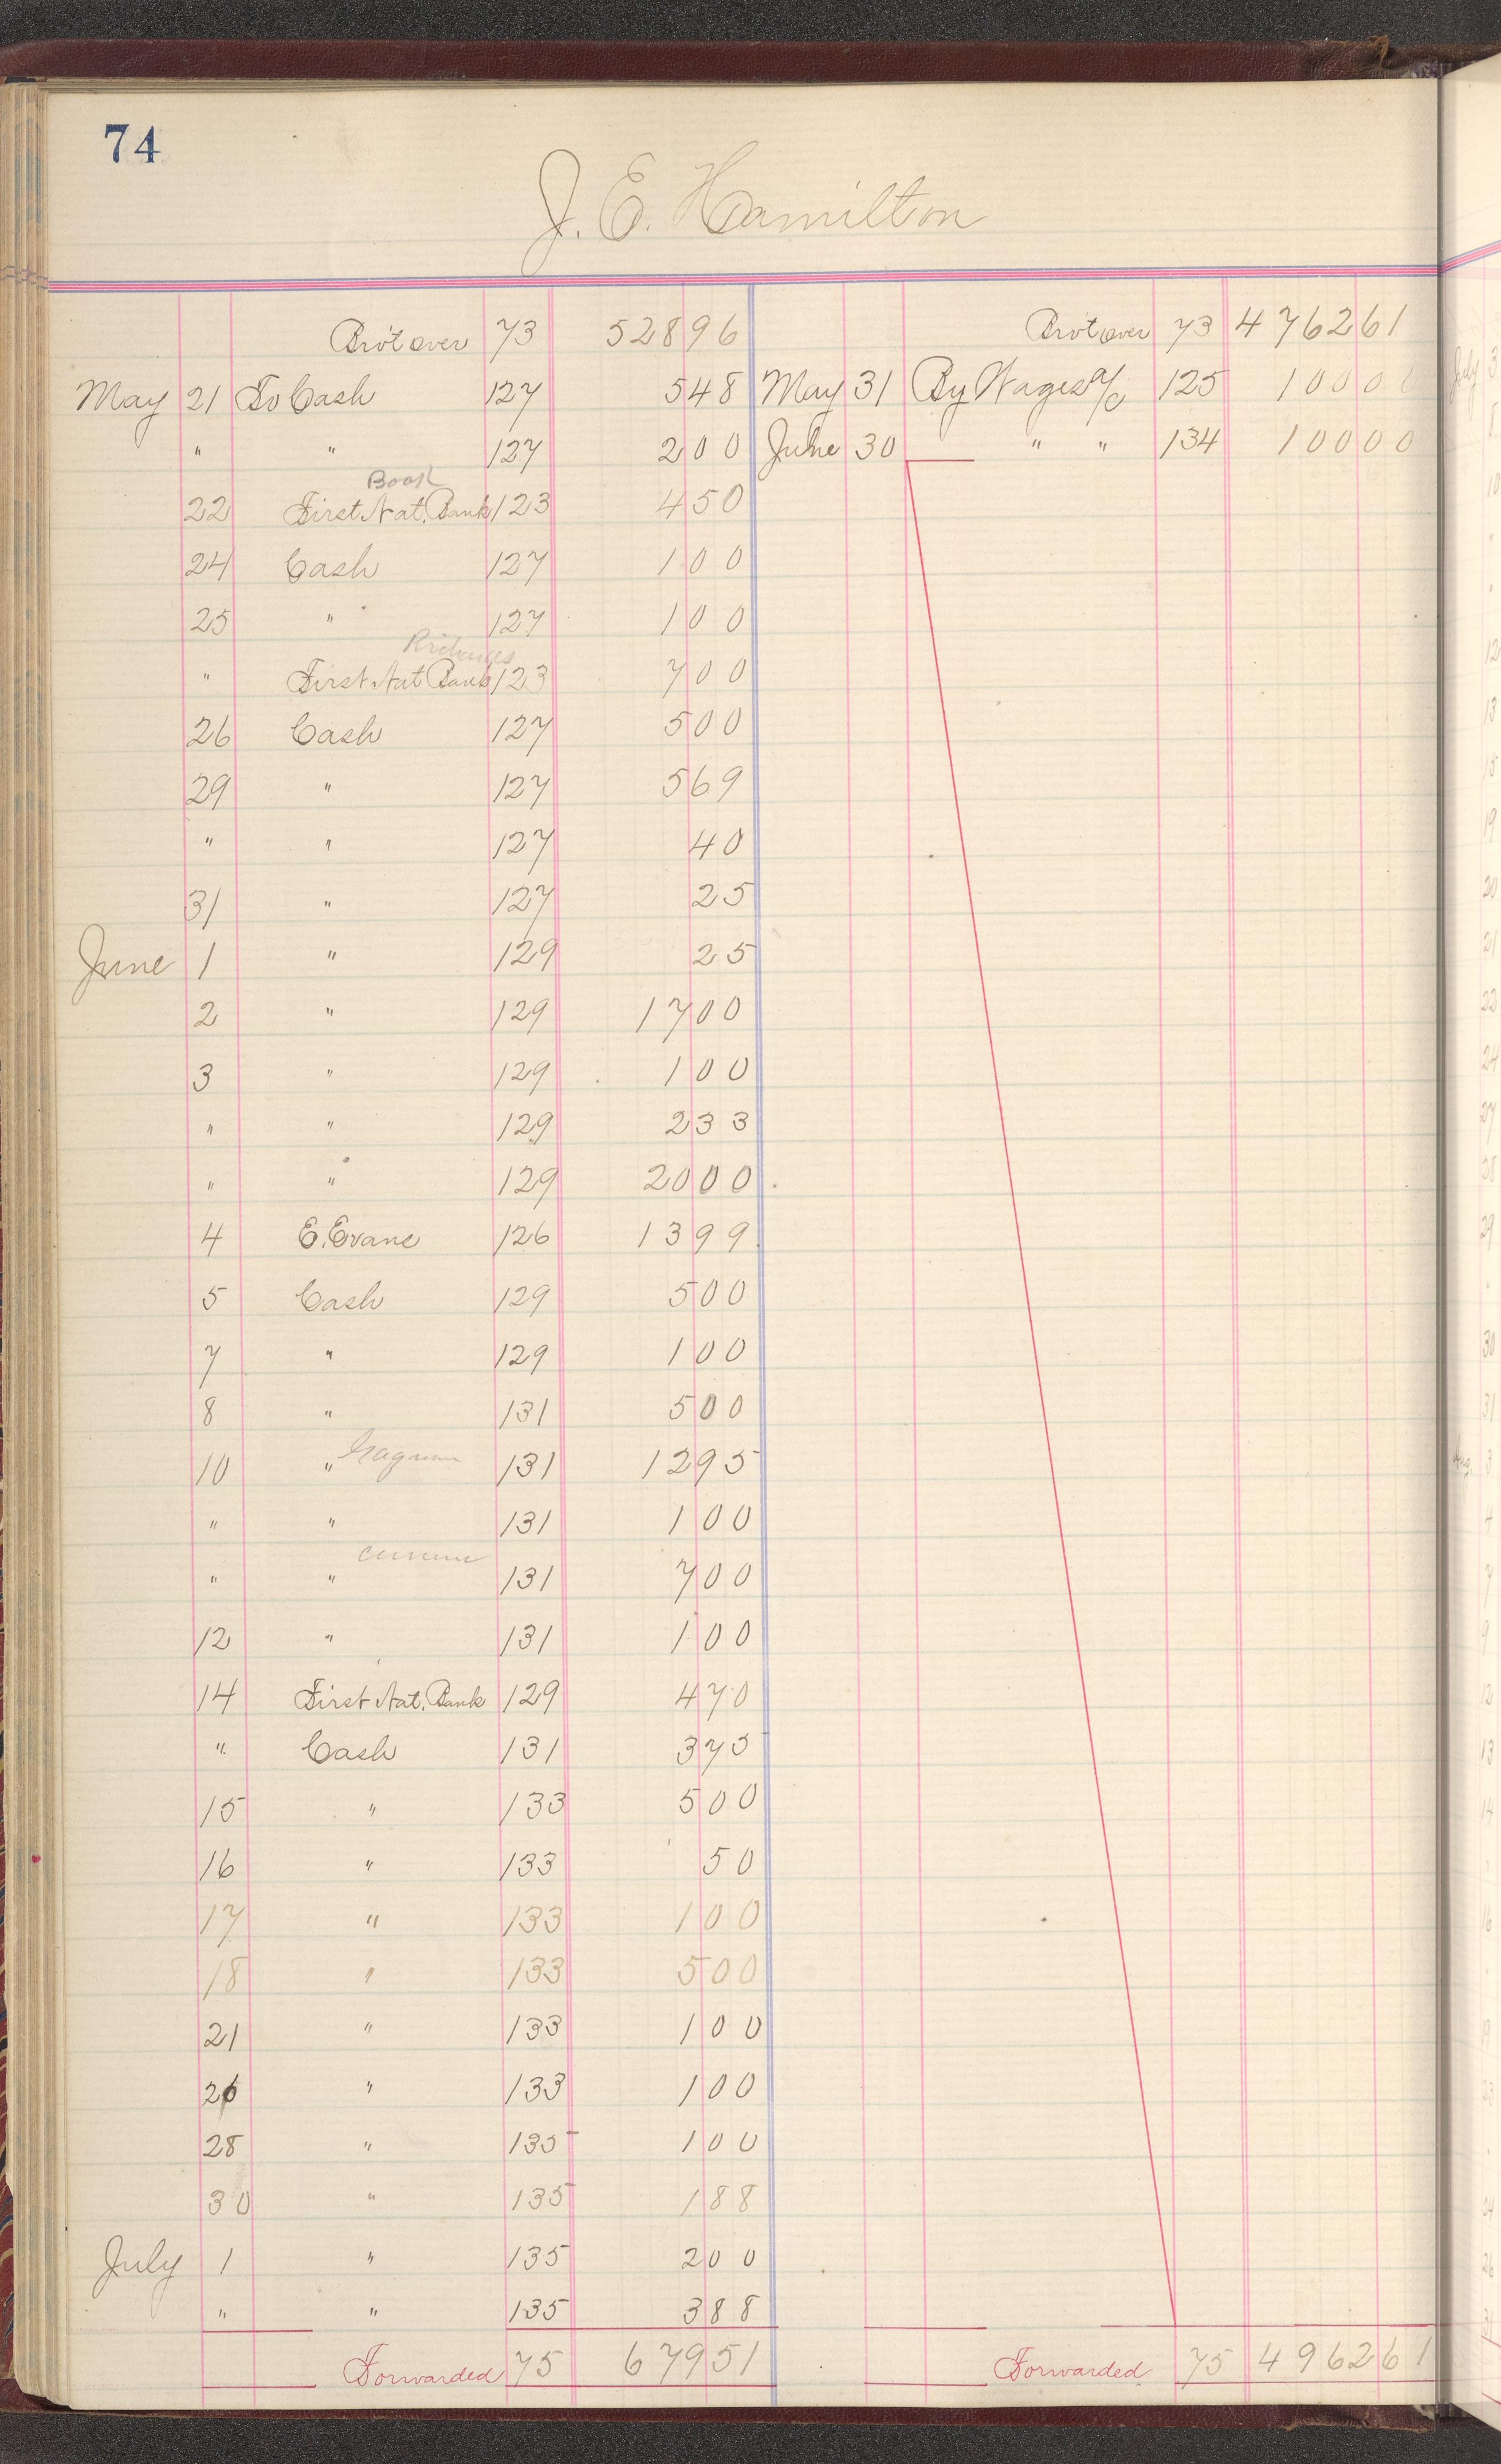 74
J. E. Hamilton
Bro't over 73 528 96
May 21 To Cash 127 5 48
" " 127 2 00
Book
22 First Nat. Bank 123 4 50
24 Cash 127 1 00
25 " 127 1 00
" First Nat Bank 123 7 00
26 Cash 127 5 00
29 " 127 5 69
" " 127 40
31 " 127 25
June 1 " 129 25
2 " 129 17 00
3 " 129 1 00
" " 129 2 33
" " 129 20 00
4 E. Evans 126 13 99
5 Cash 129 5 00
7 " 129 1 00
8 " 131 5 00
10 " 131 12 95
" " 131 1 00
" " 131 7 00
12 " 131 1 00
14 First Nat. Bank 129 4 70
" Cash 131 3 75
15 " 133 5 00
16 " 133 50
17 " 133 1 00
18 " 133 5 00
21 " 133 1 00
26 " 133 1 00
28 " 135 1 00
30 " 135 1 88
July 1 " 135 2 00
" " 135 3 88
Forwarded 75 679 51
Bro't over 73 4762 61
May 31 By Wages a/c 125 100 00
June 30 " " 134 100 00
Forwarded 75 4962 61
July 3